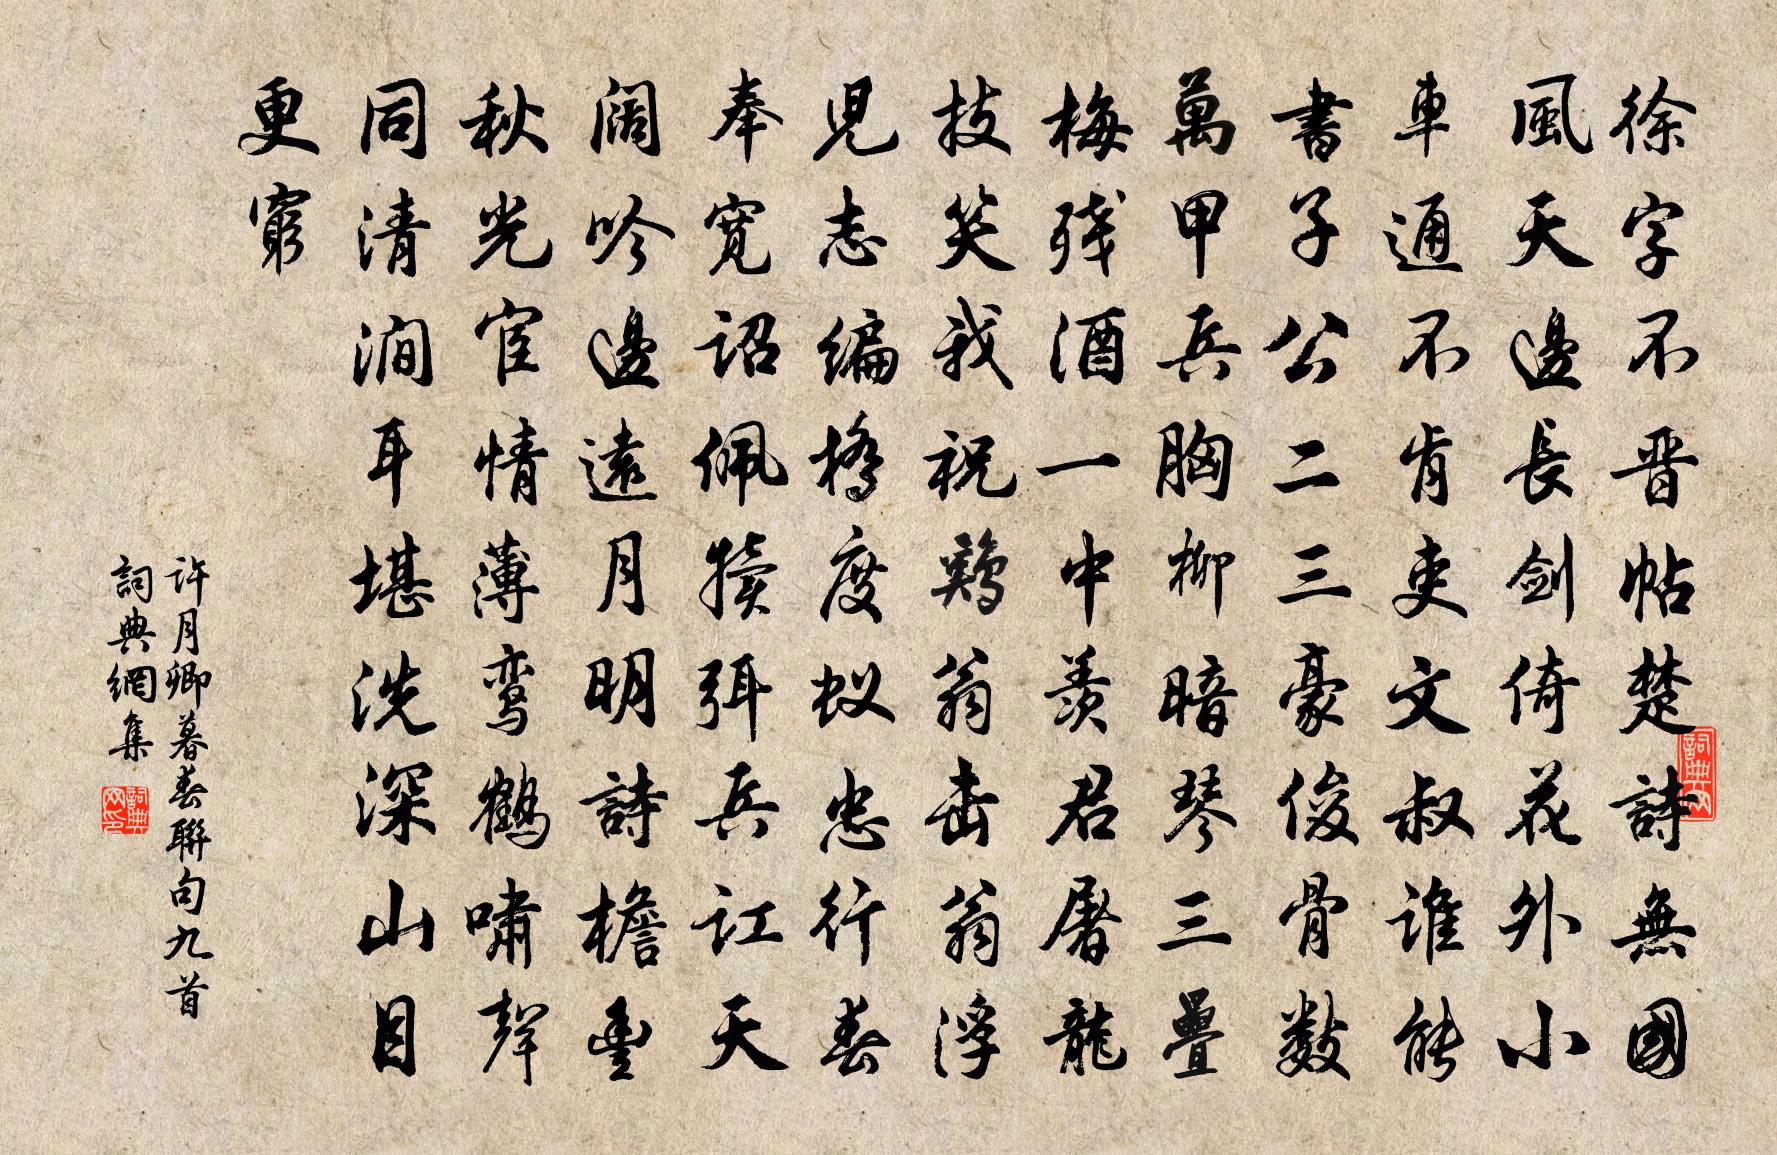 徐字不晋帖楚詩無國
風天邊長剑倚花外小
車通不肯吏文叔谁能
書子公二三豪俊骨数
萬甲兵胸柳暗琴三疊
梅残酒一中羡君屠龍
技笑我祝鷄翁击翁浮
児志编橋度蚁忠行春
奉寛詔佩犊弭兵讧天
阔吟邊遠月明詩檐垂
秋光宦情薄鸾鶴啸聲
同清澗耳堪洗深山目
更窮
许月卿暮春聯句九首
詞典網集
詞典网
詞典网印